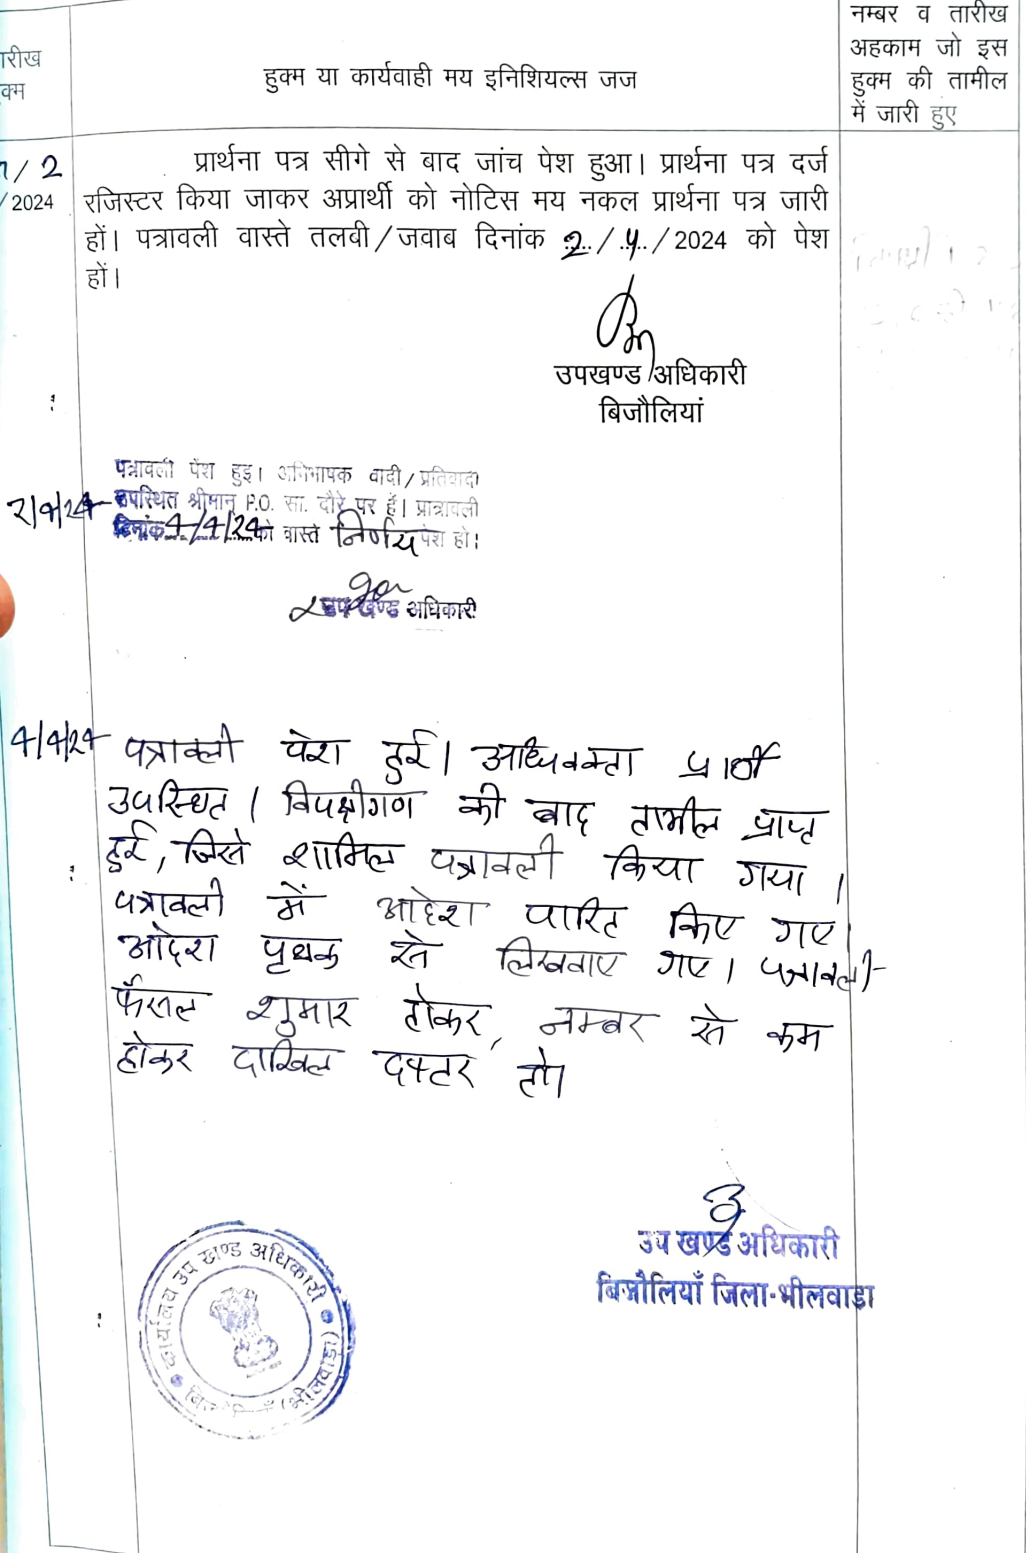 नम्बर व तारीख
अहकाम जो इस
हुक्म की तामील
में जारी हुए
हुक्म या कार्यवाही मय इनिशियल्स जज
ारीख
क्म
/ 2
/ 2024
प्रार्थना पत्र सीगे से बाद जांच पेश हुआ। प्रार्थना पत्र दर्ज
रजिस्टर किया जाकर अप्रार्थी को नोटिस मय नकल प्रार्थना पत्र जारी
हों। पत्रावली वास्ते तलबी/जवाब दिनांक 2/4/2024 को पेश
हों।
उपखण्ड अधिकारी
बिजौलियां
पत्रावली पेश हुइ। अभिभाषक वादी/प्रतिवादी
2/4/24 उपस्थित श्रीमान् P.O. सा. दौरे पर हैं। प्रात्रावली
दिनांक 4/4/24 को वास्ते निर्णय पेश हो।
उप खण्ड अधिकारी
4/4/24 पत्रावली पेश हुई। अधिवक्ता प्रार्थी
उपस्थित। विपक्षीगण की बाद तामील प्राप्त
हुई, जिसे शामिल पत्रावली किया गया।
पत्रावली में आदेश पारित किए गए।
आदेश पृथक से लिखवाए गए। पत्रावली
फैसल शुमार होकर, नम्बर से कम
होकर दाखिल दफ्टर हो।
उप खण्ड अधिकारी
बिजौलियाँ जिला-भीलवाडा
कार्यालय उप खण्ड अधिकारी
(भीलवाड़ा)